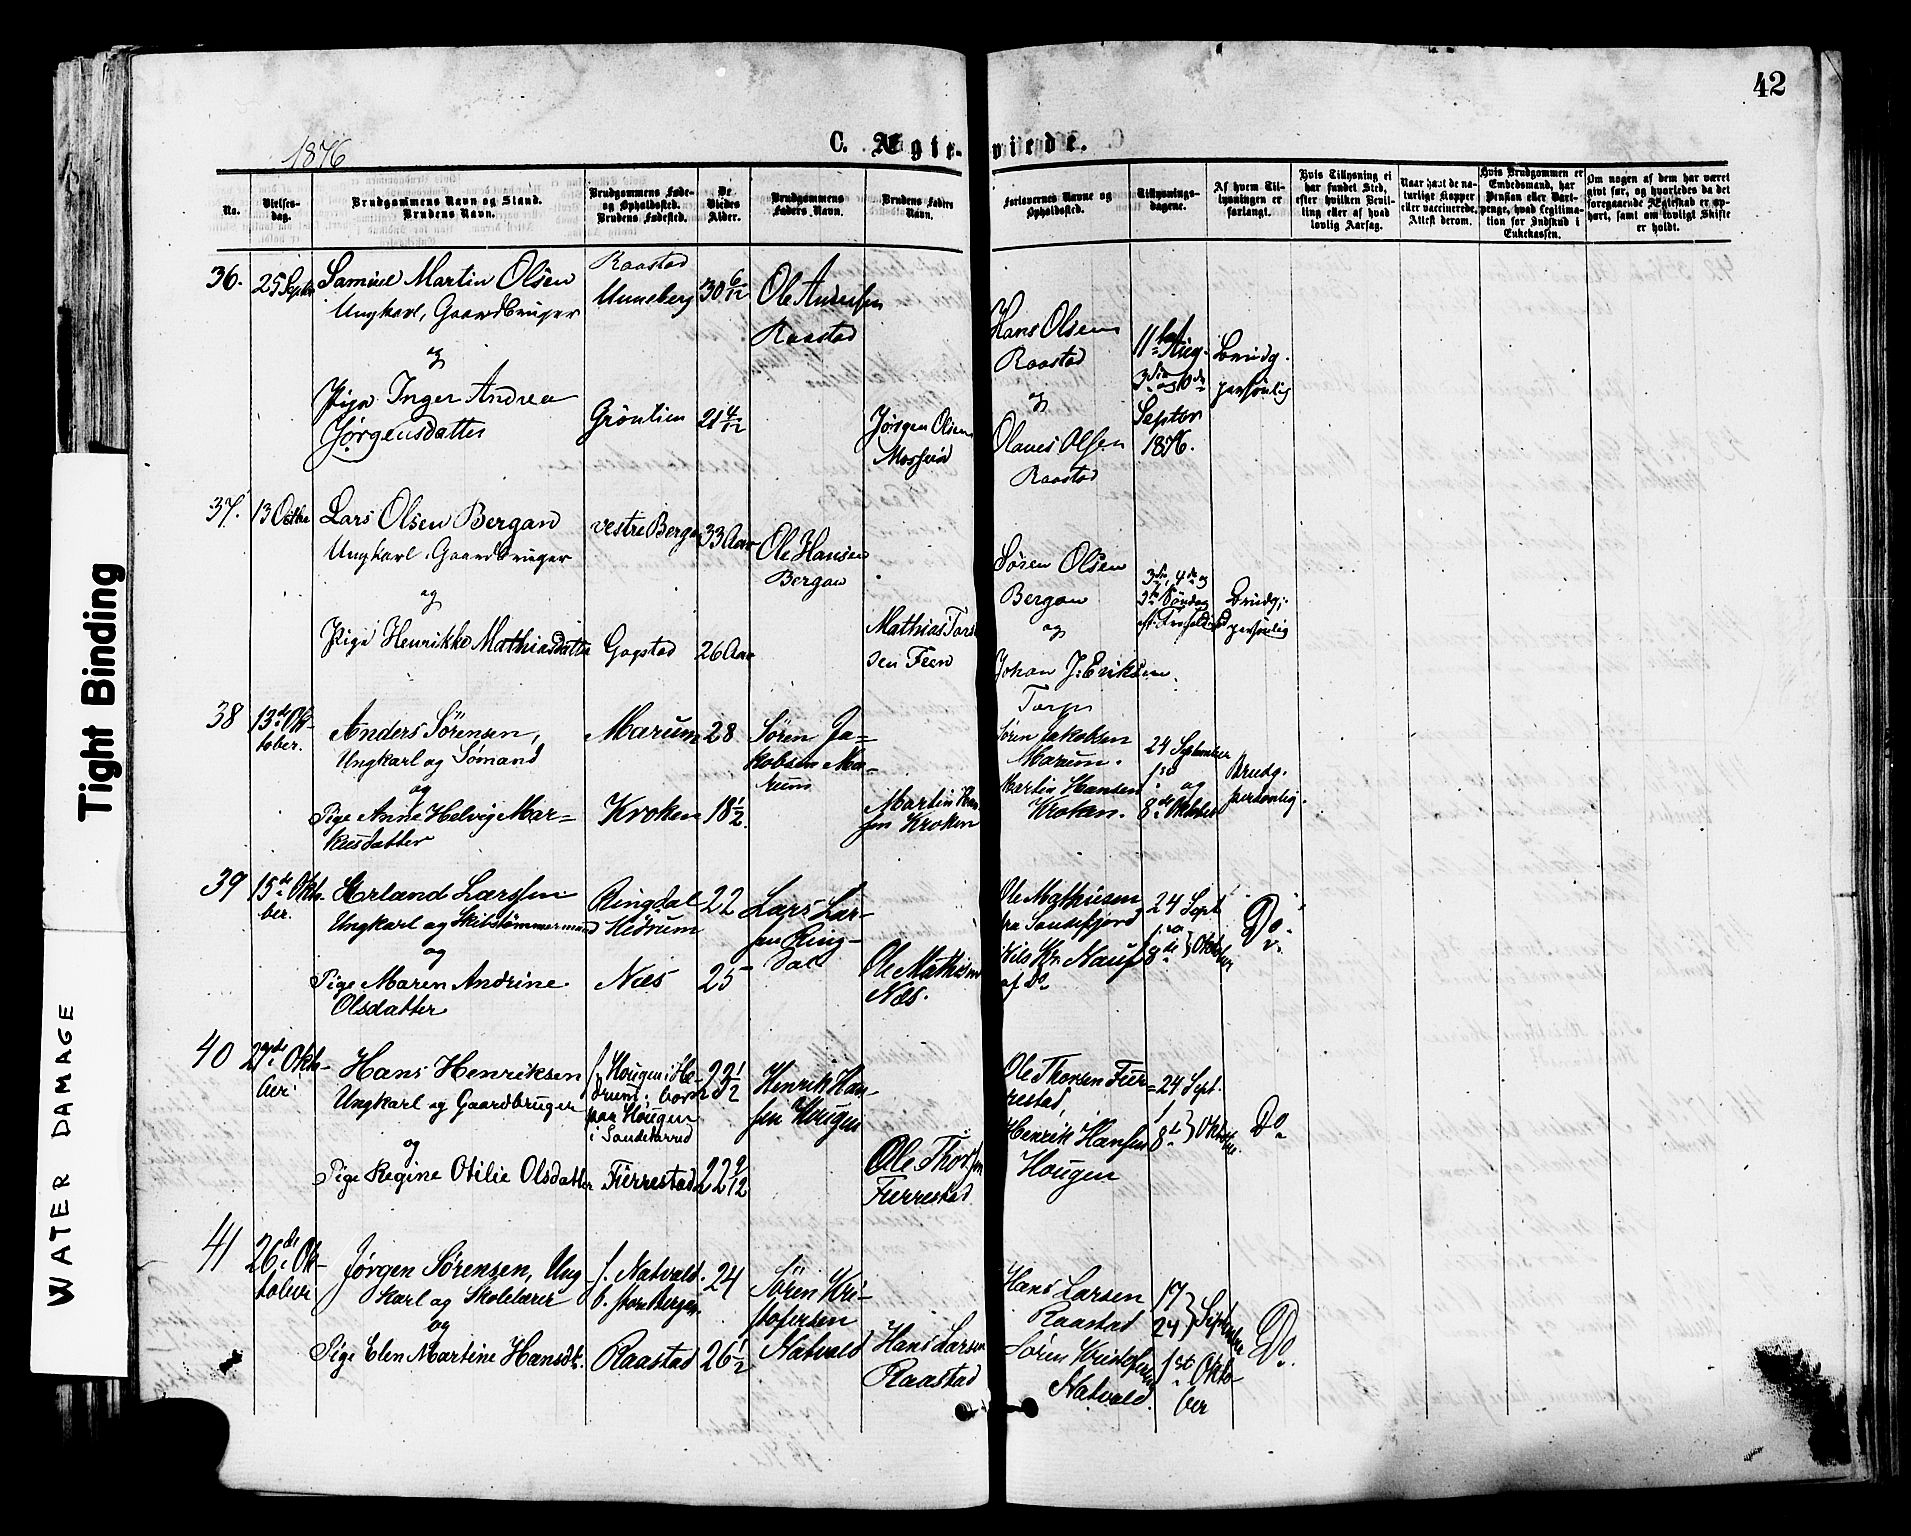 42
1876
C. Ægte- viede.
No.
Vielses-
dag.
Brudgommens Navn og Stand.
Brudens Navn.
Brudgommens Føde-
og Opholdssted.
Brudens Fødested.
De
Viedes
Alder.
Brudgommens
Faders Navn.
Brudens Faders
Navn.
Forlovernes Navne og
Opholdssted.
Tillysnings-
dagene.
Af hvem Til-
lysningen er
forlangt.
Hvis Tillysning ei
har fundet Sted,
efter hvilken Bevil-
ling eller af hvad
lovlig Aarsag.
Naar havt de na-
turlige Kopper
eller vaccinerede.
Attest derom.
Hvis Brudgommen er
Embedsmand, har
Pension eller Vart-
penge, hvad Legitima-
tion for Indskud i
Enkekassen.
Om nogen af dem har været
givt før, og hvorledes da det
foregaaende Ægteskab er op-
hørt, samt om lovligt Skifte
er holdt.
36.
25 Septbr
Samuel Martin Olsen
Ungkarl, Gaardbruger
og
Pige Inger Andrea
Jørgensdatter
Raastad
Unneberg
Grøntien
30 6/12
21 4/12
Ole Andersen
Raastad
Jørgen Olsen
Hans Olsen
Raastad
og
Olaves Olsen
Raastad
11te Aug.
3die og
Septbr
1876.
Brudg.
personlig
37.
13 Octbr
Lars Olsen Bergan
Ungkarl, Gaardbruger
og
Pige Henrikke Mathiasdatter
vestre Bergan
Gogstad
33 Aar
26 Aar
Ole Hansen
Bergan
Mathias Tors-
sen Feen
Søren Olsen
Bergan
og
Johan J. Eriksen
Torp
3die, 4de og
Søndag
Brudg.
personlig
38
13de Ok-
tober.
Anders Sørensen,
Ungkarl og Sømand
og
Pige Anne Helvig Mar-
kusdatter
Marum
Kroken
28
18 1/2
Søren Ja-
kobsen Ma-
rum
Martin Han-
sen Kroken
Søren Jakobsen
Marum.
Martin Hansen
Kroken.
24 September
1ste og
8de Oktober
Brudg.
personlig.
39
15de Okto-
ber.
Erland Larssen
Ungkarl og Skibstømmermand
og
Pige Maren Andrine
Olsdatter
Ringdal
Hedrum
Næs
22
25
Lars Lar-
sen Ring-
dal
Ole Mathisen
Næs.
Ole Mathisen
fra Sandefjord
Nils Kr. Nauf
af Do
24 Sept.
1ste
8de } Oktober
Do.
40
27de Okto-
ber
Hans Henriksen
Ungkarl og Gaardbruger
og
Pige Regine Otilie Olsdatter
f. Hougen i He-
drum, bor
paa Hougen
i Sandeherred
Fierrestad
22 1/2
22 9/12
Henrik Han-
sen Hougen
Ole Thorsen
Fierrestad.
Ole Thorsen Fier-
restad,
Henrik Hansen
Hougen
24 Sept.
1
8de } Oktober
Do
41
26de Ok-
tober
Jørgen Sørensen, Ung-
karl og Skolelærer
og
Pige Elen Martine Hansdt.
f. Natvald.
b. store Bergan.
Raastad
24
26 1/2
Søren Kri-
stofersen
Natvald
Hans Larsen
Raastad
Hans Larsen
Raastad
Søren Kristofersen
Natvald.
17
24 } September
1ste Okto-
ber
Do.
Tight Binding
WATER DAMAGE